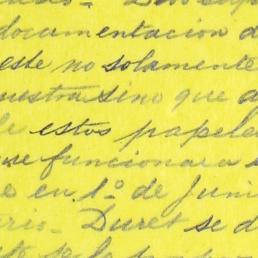 documentacion d
este no solamente
uestra sino que d
estos papele
se funcionara a
e en 1º de Juni
Duret se d